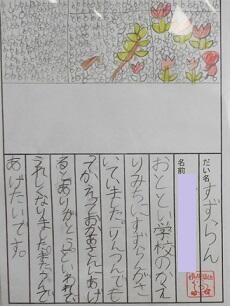 だい名
すずらん
名前
おととい学校のかえ
りみちにすずらんがさ
いていました。りんつんでも
ってかえっておかあさんにあげ
ると「ありがとう」といわれて
うれしくなりました。またつんで
あげたいです。